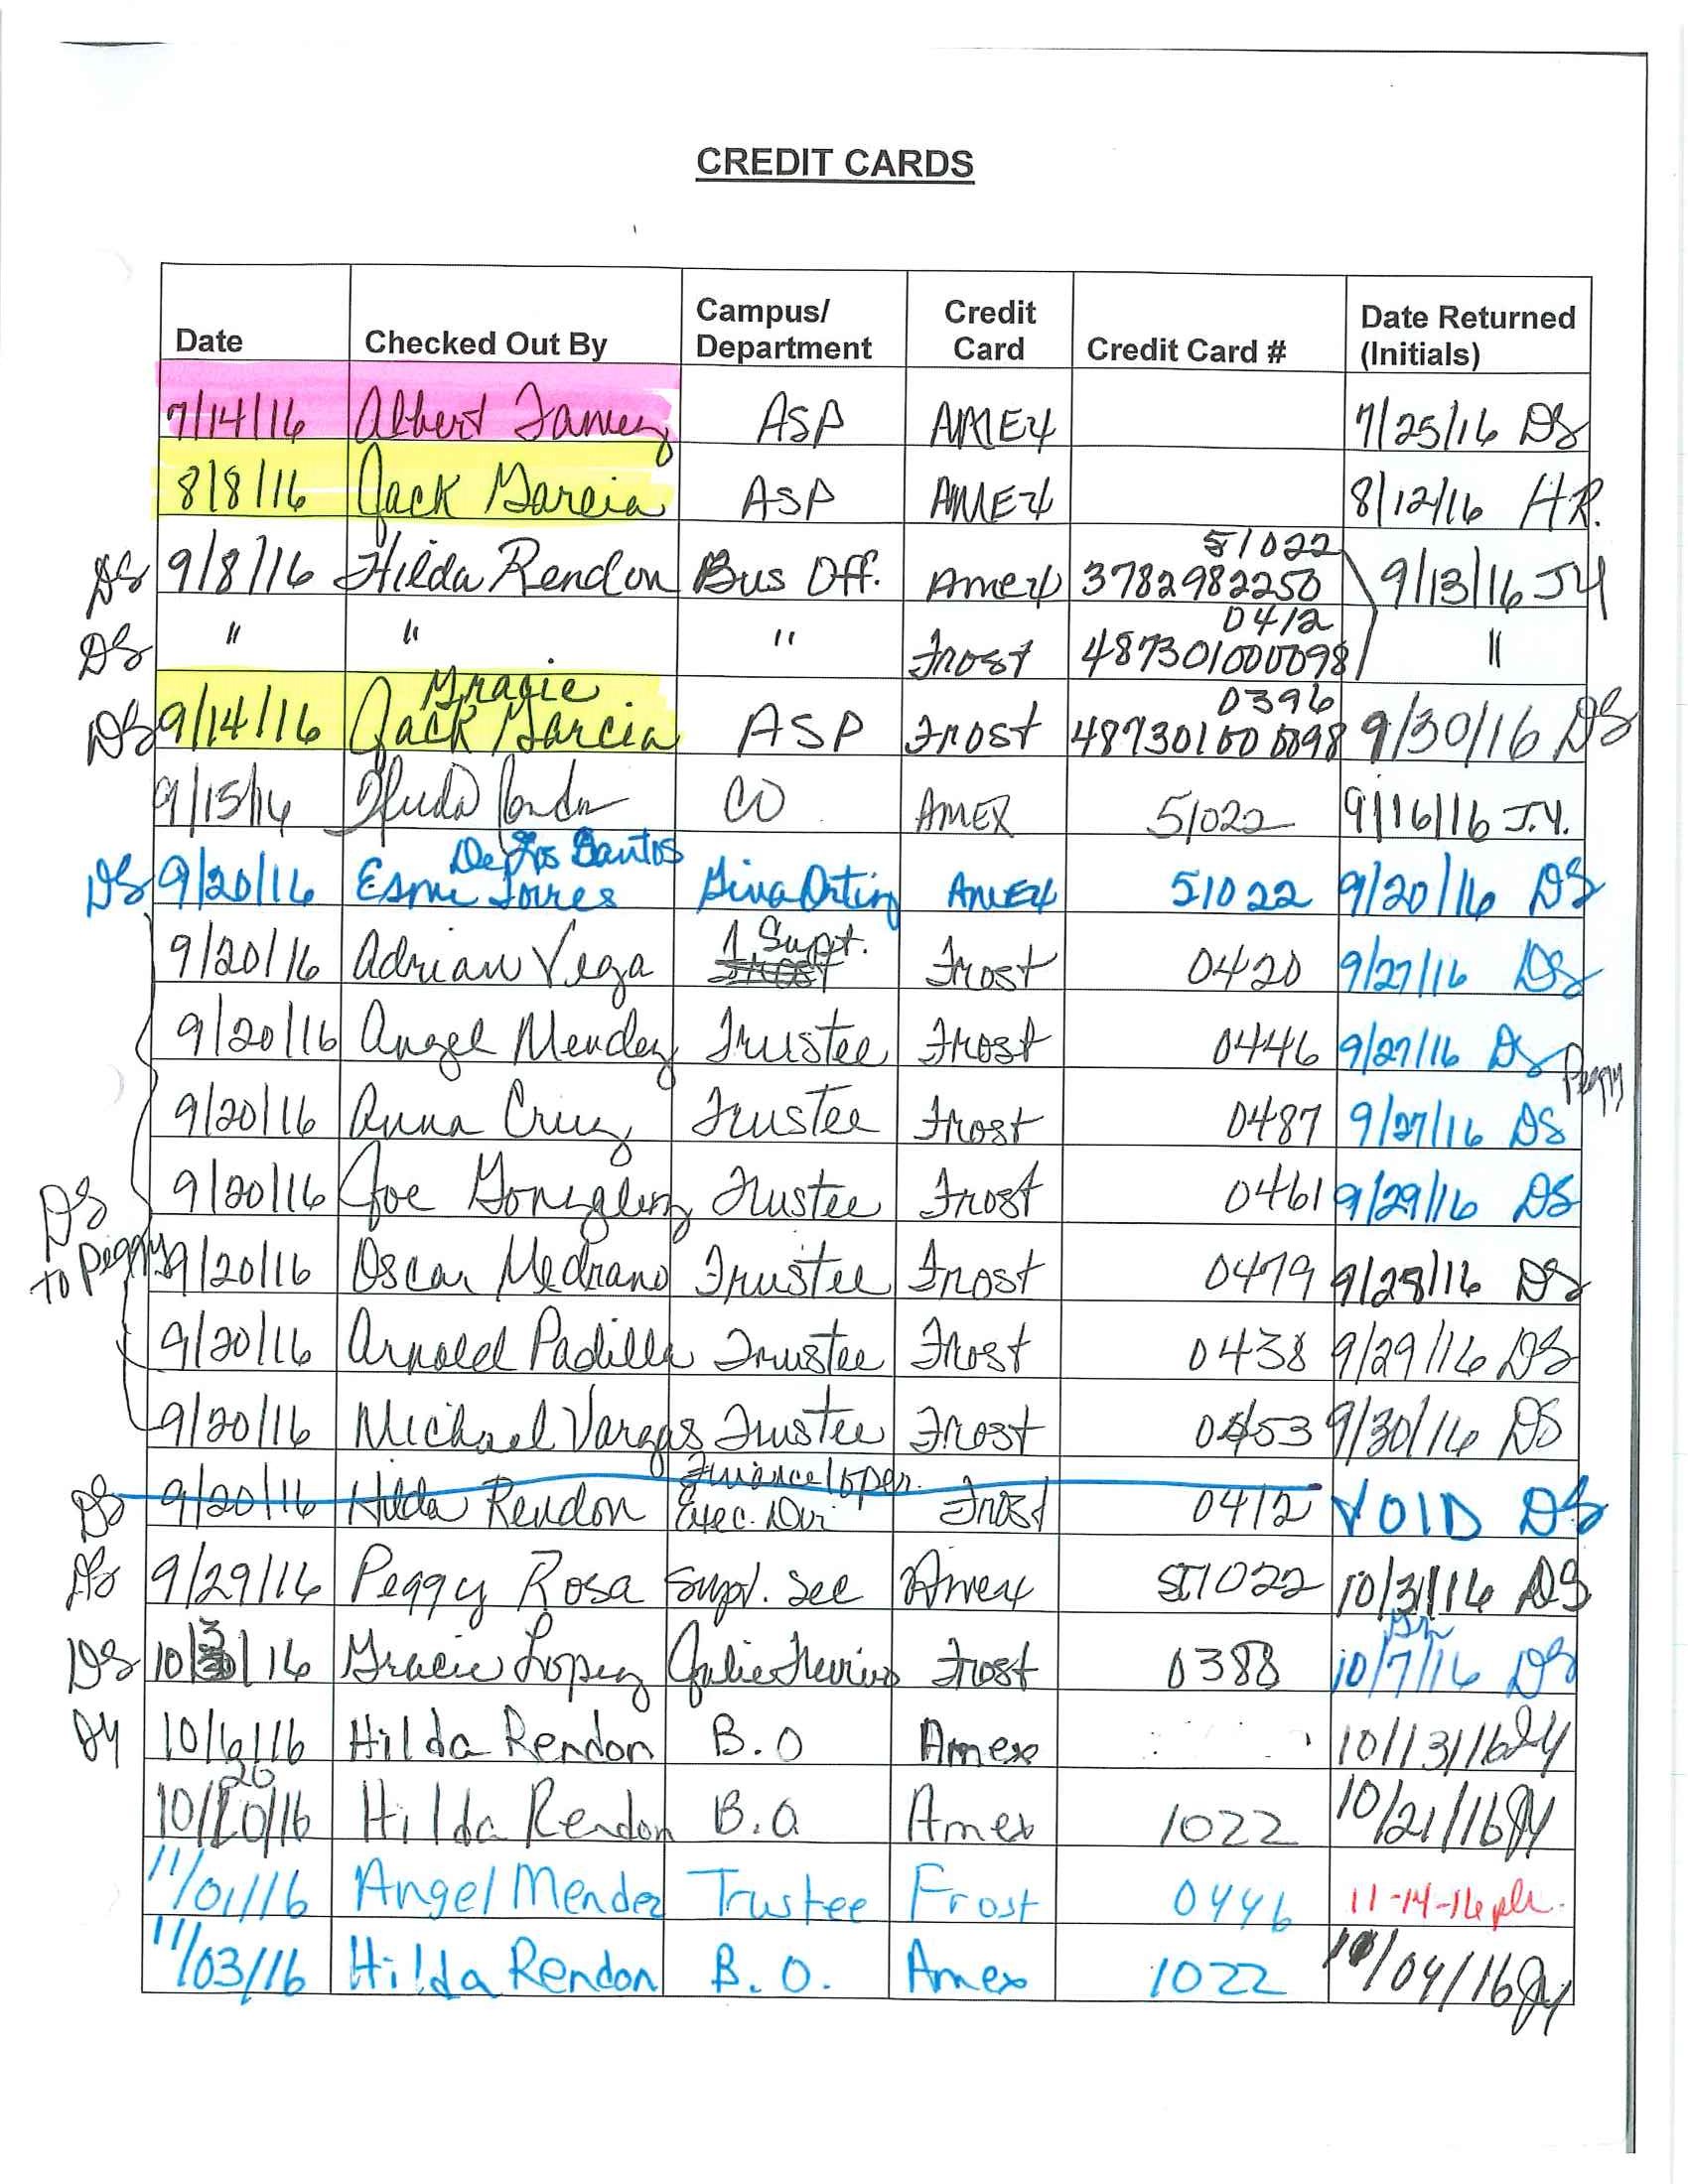 CREDIT CARDS
Date Checked Out By Campus/ Department Credit Card Credit Card # Date Returned (Initials)
7/14/16 Albert Tamez ASP AMEX 7/25/16 DS
8/8/16 Jack Garcia ASP AMEX 8/12/16 HR.
DS 9/8/16 Hilda Rendon Bus Off. Amex 3782982250 51022 9/13/16 JY
DS " " " Frost 487301000098 0412 "
DS 9/14/16 Gracie Jack Garcia ASP Frost 487301000098 0396 9/30/16 DS
9/15/16 CO AMEX 51022 9/16/16 J.Y.
DS 9/20/16 Esmi Torres De Los Santos AMEX 51022 9/20/16 DS
9/20/16 Adrian Vega Supt. Frost 0420 9/27/16 DS
9/20/16 Angel Mendez Trustee Frost 0446 9/27/16 DS Peggy
9/20/16 Anna Cruz Trustee Frost 0487 9/27/16 DS
9/20/16 Joe Gonzalez Trustee Frost 0461 9/29/16 DS
DS to Peggy 9/20/16 Oscar Medrano Trustee Frost 0479 9/28/16 DS
9/20/16 Arnold Padilla Trustee Frost 0438 9/29/16 DS
9/20/16 Michael Vargas Trustee Frost 0453 9/30/16 DS
DS 9/20/16 Hilda Rendon Finance/Oper. Exec. Dir Frost 0412 VOID DS
DS 9/29/16 Peggy Rosa Supt. Sec Amex 51022 10/3/16 DS
DS 10/3/16 Gracie Lopez Frost 0388 10/7/16 DS
JY 10/6/16 Hilda Rendon B.O Amex 10/13/16 JY
10/20/16 20 Hilda Rendon B.O Amex 1022 10/21/16 JY
11/01/16 Angel Mendez Trustee Frost 0446 11-14-16
11/03/16 Hilda Rendon B.O. Amex 1022 11/04/16 JY